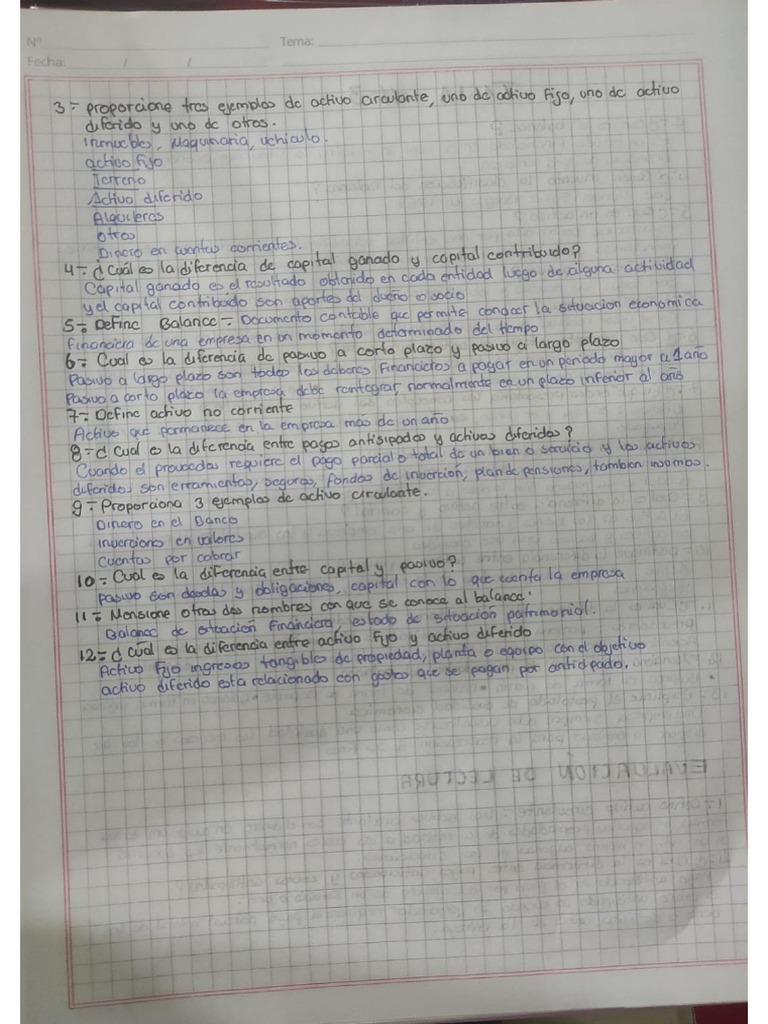 Nº Tema:
Fecha: / /
3- proporcione tres ejemplos de activo circulante, uno de activo fijo, uno de activo
diferido y uno de otros.
Inmuebles, Maquinaria, vehiculo.
activo fijo
Terreno
Activo diferido
Alquileres
otros
Dinero en cuentas corrientes.
4- ¿Cuál es la diferencia de capital ganado y capital contribuido?
Capital ganado es el resultado obtenido en cada entidad luego de alguna actividad
y el capital contribuido son aportes del dueño o socio
5- Define Balance - Documento contable que permite conocer la situacion economica
financiera de una empresa en un momento determinado del tiempo
6- Cual es la diferencia de pasivo a corto plazo y pasivo a largo plazo
Pasivo a largo plazo son todos los deberes financieros a pagar en un periodo mayor a 1 año
Pasivo a corto plazo la empresa debe reintegrar, normalmente en un plazo inferior al año
7- Define activo no corriente
Activo que permanece en la empresa más de un año
8- ¿Cual es la diferencia entre pagos antisipados y activos diferidos?
Cuando el proveedor requiere el pago parcial o total de un bien o servicio y los activos
diferidos son erramientas, seguros, fondos de inverción, plan de pensiones, tambien insumos.
9- Proporciona 3 ejemplos de activo circulante.
Dinero en el Banco
inverciones en valores
Cuentas por cobrar
10- Cual es la diferencia entre capital y pasivo?
Pasivo son deudas y obligaciones, capital con lo que cuenta la empresa
11- Mensione otros dos nombres con que se conoce al balance.
Balance de situación financiera, estado de situación patrimonial.
12- ¿Cual es la diferencia entre activo fijo y activo diferido
Activo fijo ingresos tangibles de propiedad, planta o equipo con el objetivo
activo diferido esta relacionado con gastos que se pagan por anticipado.
EVALUACIÓN DE LECTURA